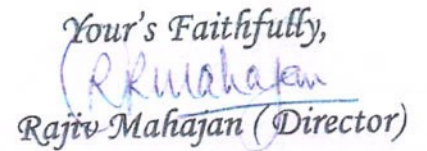 Your's Faithfully,
RRMahajan
Rajiv Mahajan ( Director)